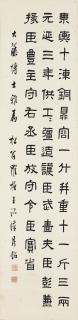 乘輿十湅銅鼎容一斗并重十一斤三兩
元延三年供工工彊造護臣武嗇夫臣彭兼
掾臣豐主守右丞臣放守令臣寶省
博士雅屬 松翁羅振玉